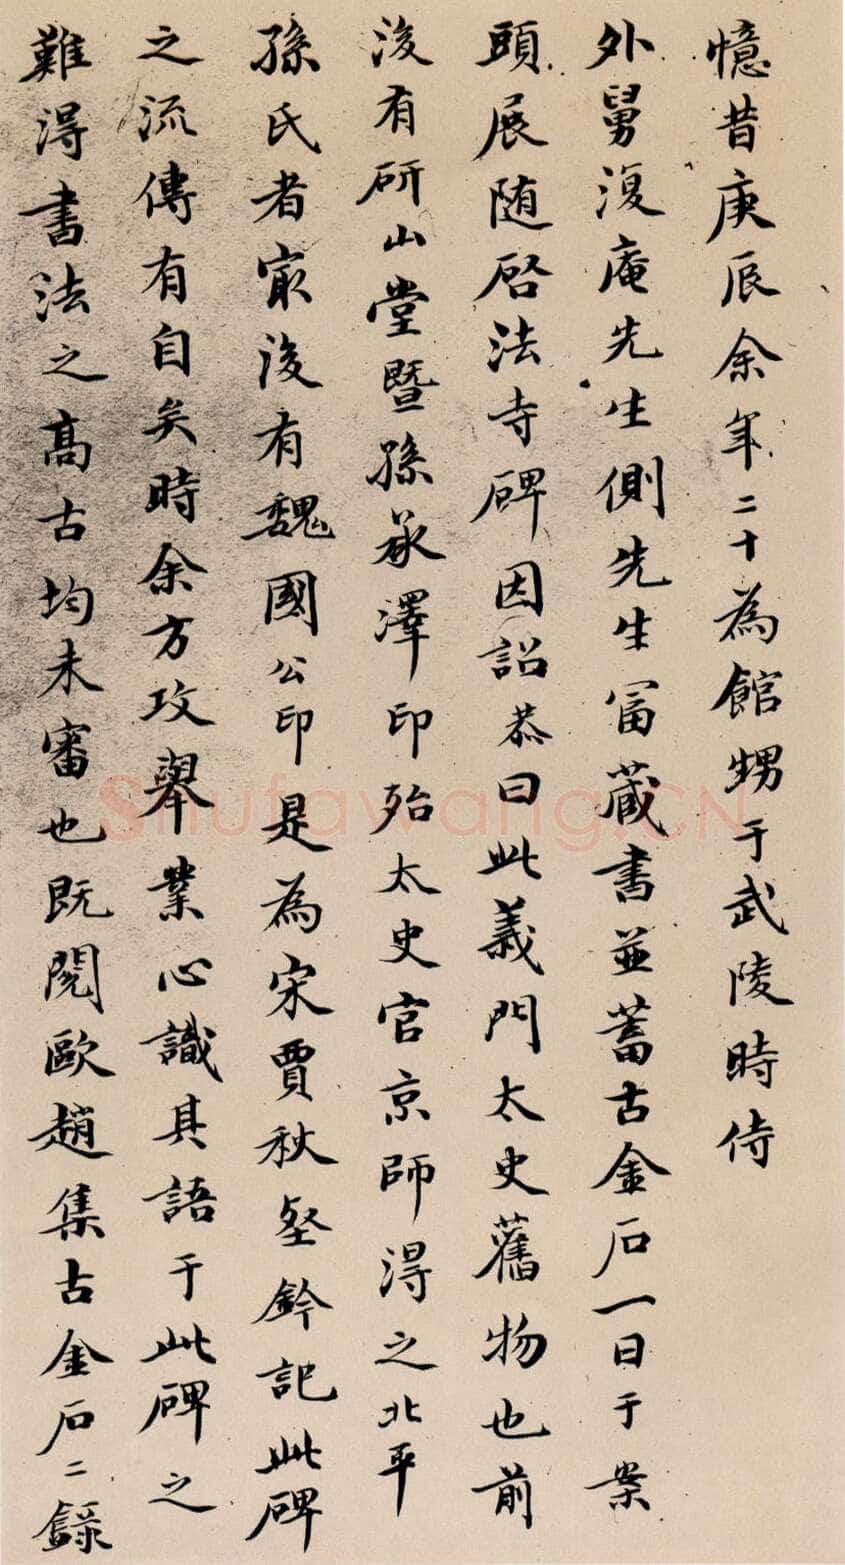 憶昔庚辰余年二十為館甥于武陵時侍
外舅澓庵先生側先生富蔵書並蓄古金石一日于案
頭展随啓法寺碑因詔恭曰此義門太史舊物也前
後有研山堂暨孫承澤印殆太史官京師得之北平
孫氏者㝡後有魏國公印是為宋賈秋壑鈐記此碑
之流傳有自矣時余方攻舉業心識其語于此碑之
難得書法之髙古均未審也既閱歐趙集古金石二錄
Shufawang.CN